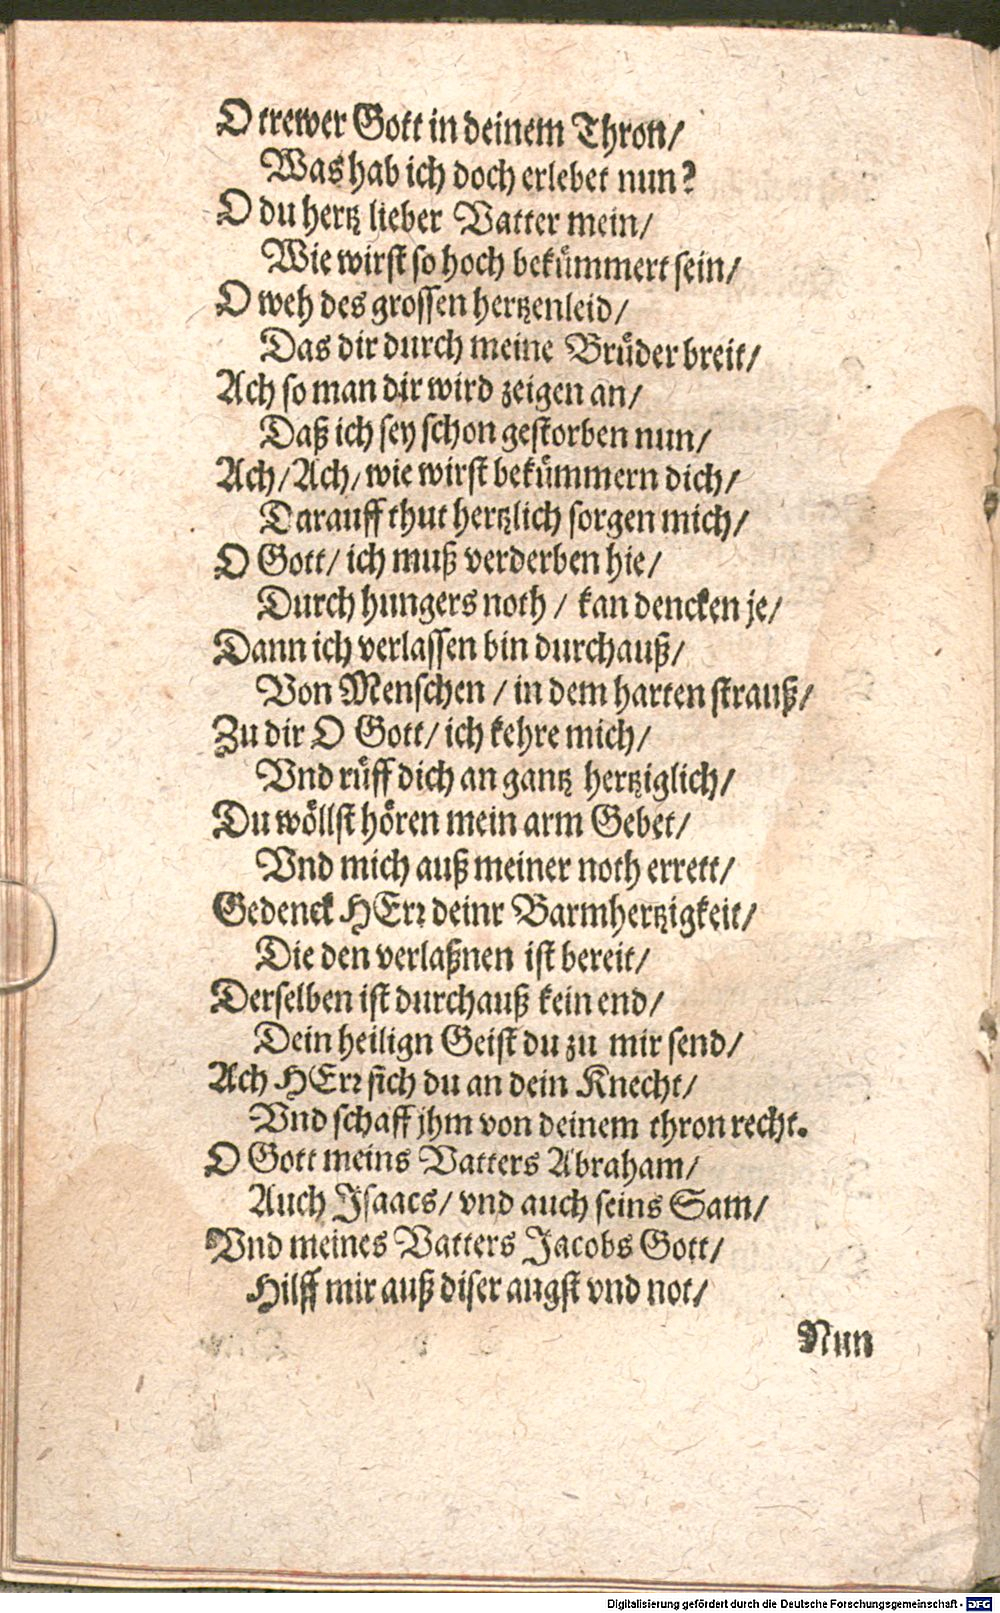 O trewer Gott in deinem Thron/
Was hab ich doch erlebet nun?
O du hertz lieber Vatter mein/
Wie wirst so hoch bekümmert sein/
O weh des grossen hertzenleid/
Das dir durch meine Brüder breit/
Ach so man dir wird zeigen an/
Daß ich sey schon gestorben nun/
Ach/ Ach/ wie wirst bekümmern dich/
Darauff thut hertzlich sorgen mich/
O Gott/ ich muß verderben hie/
Durch hungers noth / kan dencken je/
Dann ich verlassen bin durchauß/
Von Menschen / in dem harten strauß/
Zu dir O Gott/ ich kehre mich/
Vnd rüff dich an gantz hertziglich/
Du wöllst hören mein arm Gebet/
Vnd mich auß meiner noth errett/
Gedenck HErr deinr Barmhertzigkeit/
Die den verlaßnen ist bereit/
Derselben ist durchauß kein end/
Dein heilign Geist du zu mir send/
Ach HErr sich du an dein Knecht/
Vnd schaff jhm von deinem thron recht.
O Gott meins Vatters Abraham/
Auch Isaacs/ vnd auch seins Sam/
Vnd meines Vatters Jacobs Gott/
Hilff mir auß diser angst vnd not/
Nun
Digitalisierung gefördert durch die Deutsche Forschungsgemeinschaft - DFG